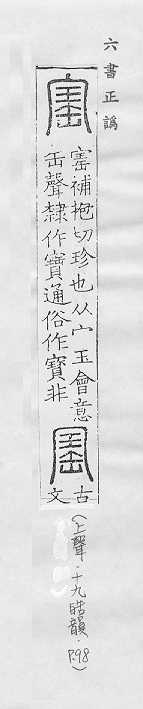 六書正譌
寚補抱切珍也从宀玉會意
缶聲隸作寶通俗作寳非
古
文
（上聲·十九皓韻·P.98）